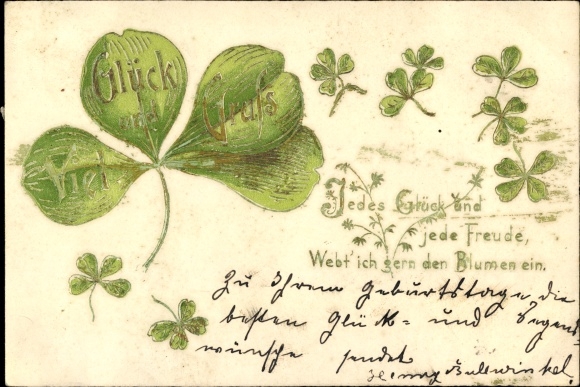 Viel
Glück
und
Gruss
Jedes Glück und
jede Freude,
Webt' ich gern den Blumen ein.
Zu Ihrem Geburtstage, die
besten Glück- und Segens
wünsche sendet